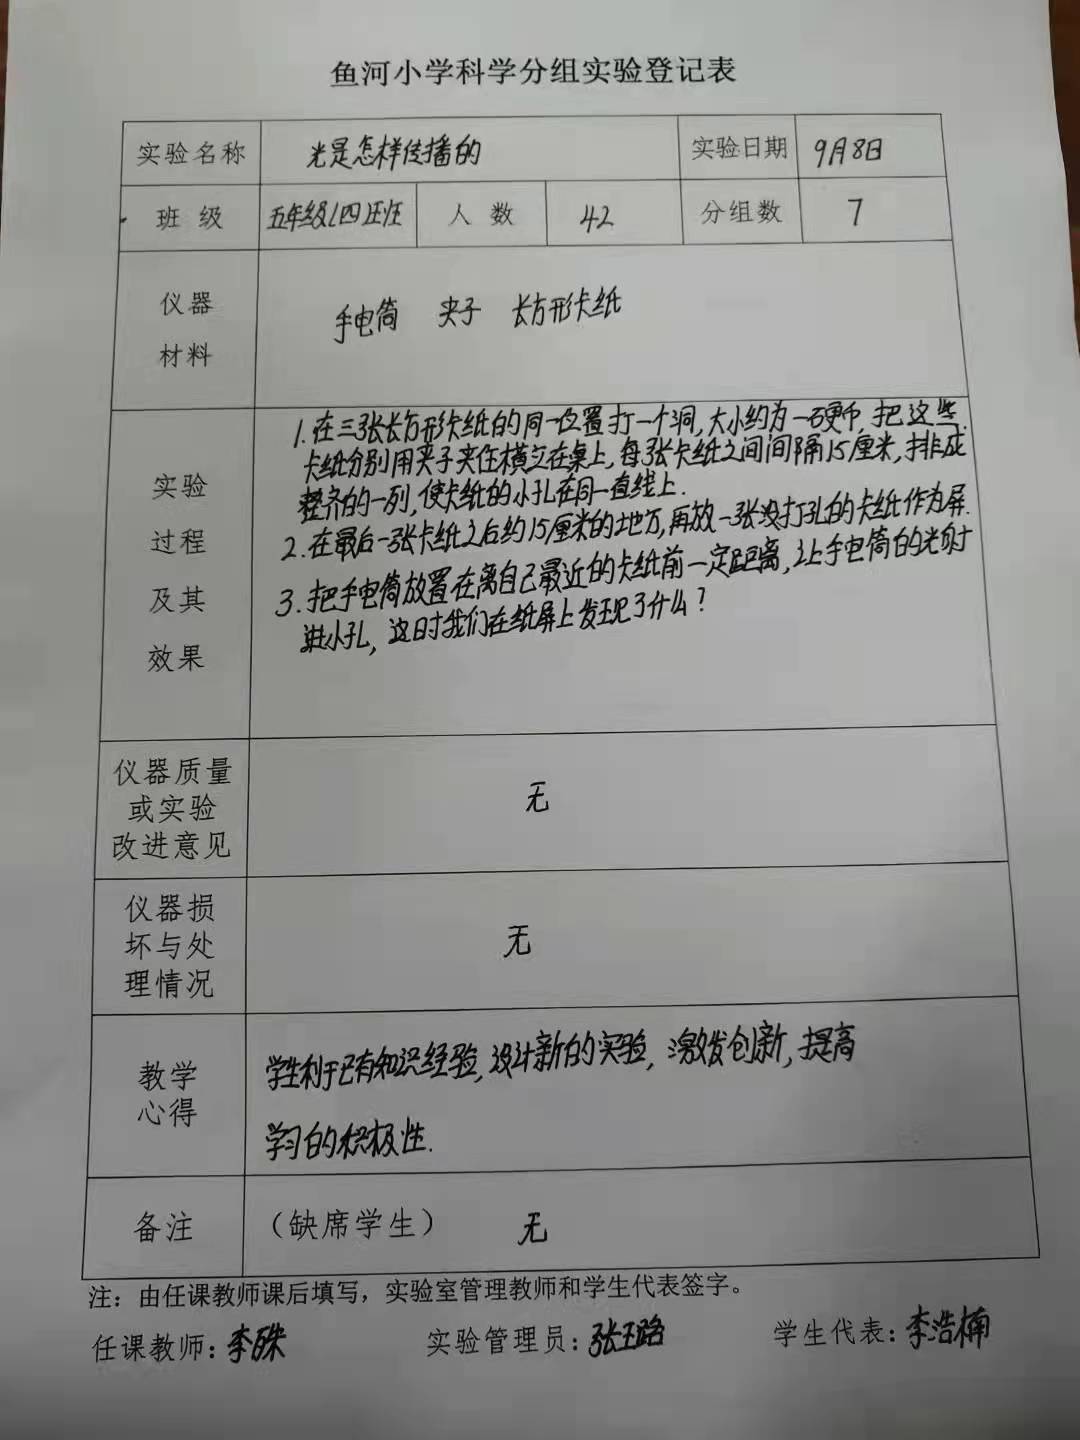 鱼河小学科学分组实验登记表
实验名称 光是怎样传播的 实验日期 9月8日
班 级 五年级(四)班 人 数 42 分组数 7
仪器
材料
手电筒 夹子 长方形卡纸
实验
过程
及其
效果
1.在三张长方形卡纸的同一位置打一个洞,大小约为一硬币,把这些
卡纸分别用夹子夹住横立在桌上,每张卡纸之间间隔15厘米,排成
整齐的一列,使卡纸的小孔在同一直线上.
2.在最后一张卡纸之后约15厘米的地方,再放一张没打孔的卡纸作为屏.
3.把手电筒放置在离自己最近的卡纸前一定距离,让手电筒的光射
进小孔,这时我们在纸屏上发现了什么?
仪器质量
或实验
改进意见
无
仪器损
坏与处
理情况
无
教学
心得
学生利于已有知识经验,设计新的实验,激发创新,提高
学习的积极性.
备注 (缺席学生) 无
注:由任课教师课后填写,实验室管理教师和学生代表签字。
任课教师:李 实验管理员:张玉路 学生代表:李浩楠